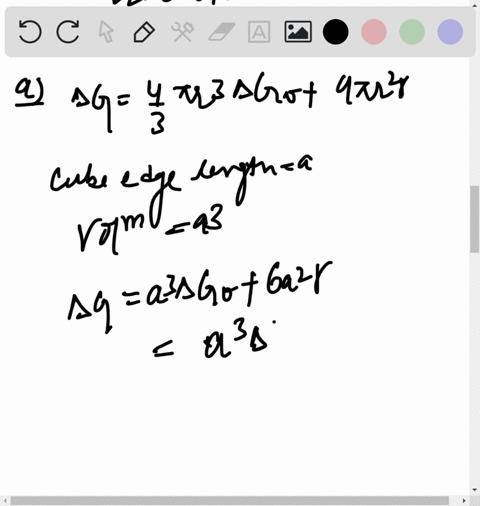 a) ΔG = 4/3 πr3 ΔGv + 4πr2γ
cube edge length = a
Volm = a3
Δg = a3ΔGv + 6a2γ
= a3Δ